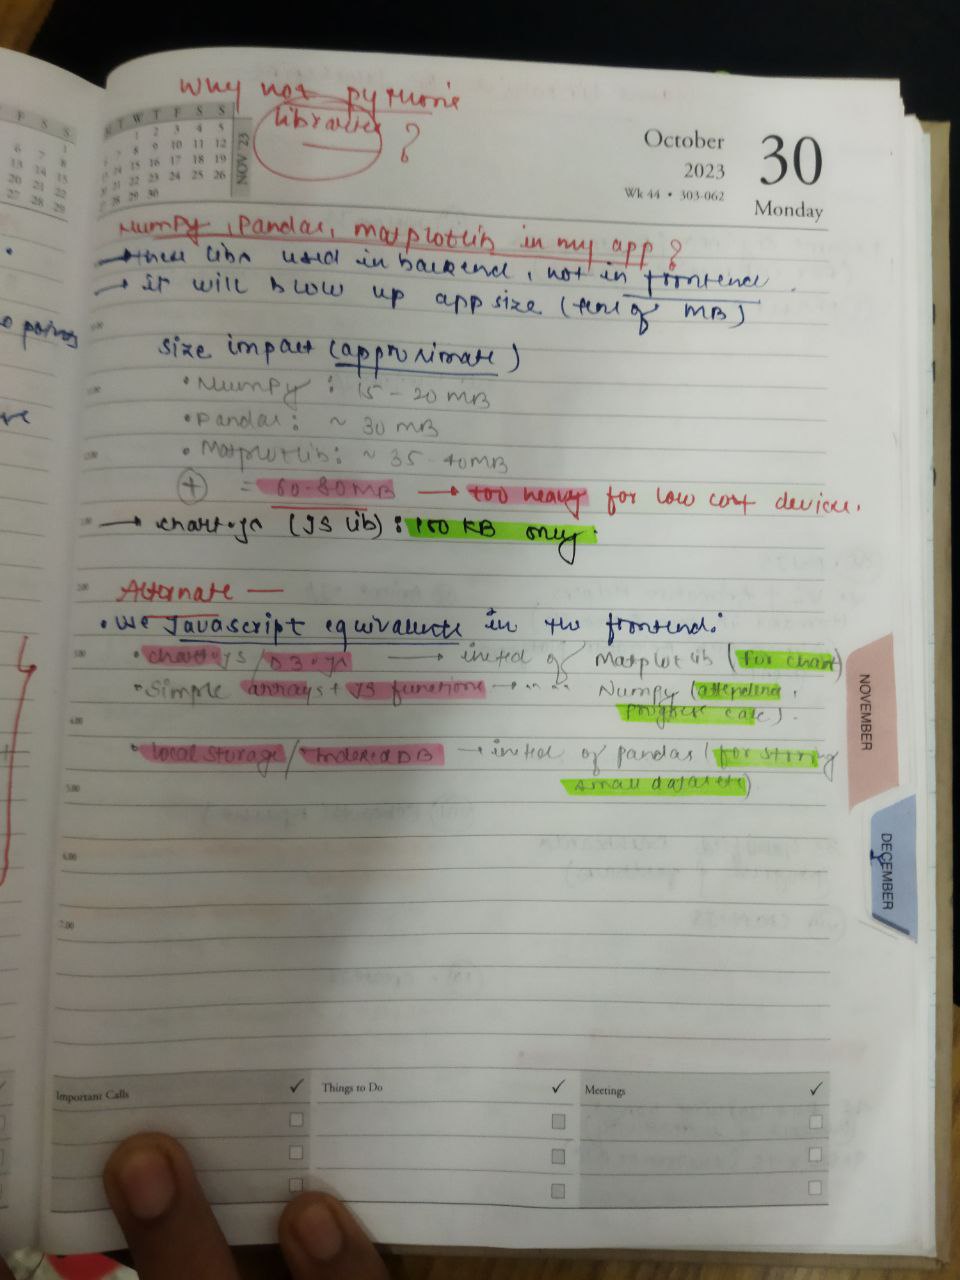 why not pythonic
libraries ?
October
2023
30
Wk 44 • 303-062
Monday
NOV '23
M T W T F S S
1 2 3 4 5
6 7 8 9 10 11 12
13 14 15 16 17 18 19
20 21 22 23 24 25 26
27 28 29 30
Numpy, Pandas, matplotlib in my app ?
→ these libs used in backend, not in frontend.
→ it will blow up app size (tens of MB)
size impact (approximate)
• Numpy : 15 - 20 MB
• pandas : ~ 30 MB
• Matplotlib : ~ 35-40MB
+ = 60-80MB → too heavy for low cost device.
→ chart.js (JS lib) : 150 KB only.
Alternate —
• use Javascript equivalents in the frontend.
• chart.js / D3.js → insted of Matplotlib (for chart)
• Simple arrays + JS functions → .. .. Numpy (attendence,
progress calc).
• local storage / IndexedDB → insted of pandas (for storing
small datasets)
NOVEMBER
DECEMBER
Important Calls ✓
Things to Do ✓
Meetings ✓